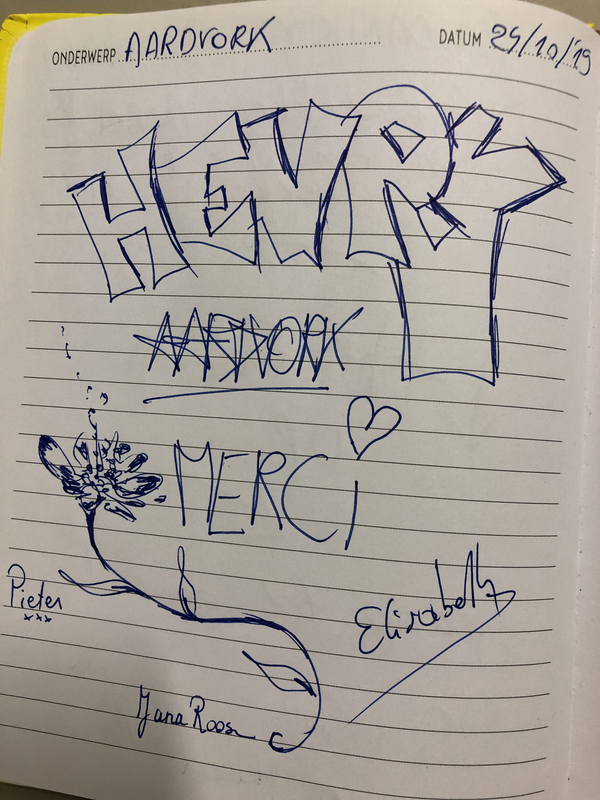 ONDERWERP AARDVORK DATUM 25/10/'19
HENRY
AARDVORK
MERCI
Pieter
xxx
Elisabeth
Jana Roosn